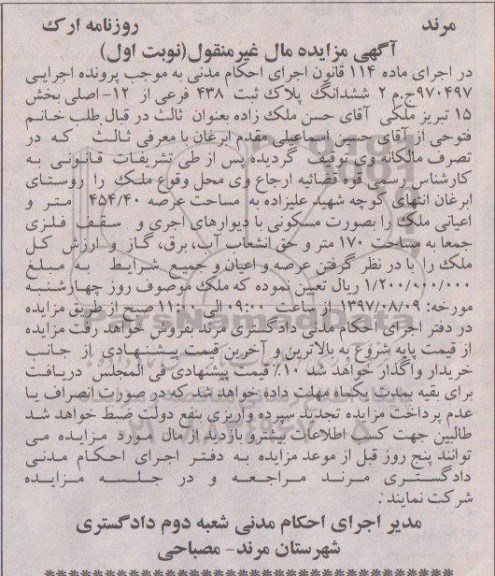 مرند
روزنامه ارک
آگهی مزایده مال غیرمنقول(نوبت اول)
در اجرای ماده ۱۱۴ قانون اجرای احکام مدنی به موجب پرونده اجرایی
۹۷۰۴۹۷ج.م ۲ ششدانگ پلاک ثبت ۴۳۸ فرعی از ۱۲- اصلی بخش
۱۵ تبریز ملکی آقای حسن ملک زاده بعنوان ثالث در قبال طلب خانم
فتوحی از آقای حسین اسماعیلی مقدم ابرغان با معرفی ثالث که در
تصرف مالکانه وی توقیف گردیده پس از طی تشریفات قانونی به
کارشناس رسمی قوه قضائیه ارجاع وی محل وقوع ملک را روستای
ابرغان انتهای کوچه شهید علیزاده به مساحت عرصه ۴۵۴/۴۰ متر و
اعیانی ملک را بصورت مسکونی با دیوارهای آجری و سقف فلزی
جمعا به مساحت ۱۷۰ متر و حق انشعاب آب، برق، گاز و ارزش کل
ملک را با در نظر گرفتن عرصه و اعیان و جمیع شرایط به مبلغ
۱/۲۰۰/۰۰۰/۰۰۰ ریال تعیین نموده که ملک موصوف روز چهارشنبه
مورخه: ۱۳۹۷/۰۸/۰۹ از ساعت ۰۹:۰۰ الی ۱۱:۰۰ صبح از طریق مزایده
در دفتر اجرای احکام مدنی دادگستری مرند بفروش خواهد رفت مزایده
از قیمت پایه شروع به بالاترین و آخرین قیمت پیشنهادی از جانب
خریدار واگذار خواهد شد ۱۰٪ قیمت پیشنهادی فی المجلس دریافت
برای بقیه بمدت یکماه مهلت داده خواهد شد که در صورت انصراف یا
عدم پرداخت مزایده تجدید سپرده واریزی بنفع دولت ضبط خواهد شد
طالبین جهت کسب اطلاعات بیشترو بازدید از مال مورد مزایده می
توانند پنج روز قبل از موعد مزایده به دفتر اجرای احکام مدنی
دادگستری مرند مراجعه و در جلسه مزایده
شرکت نمایند.
مدیر اجرای احکام مدنی شعبه دوم دادگستری
شهرستان مرند- مصباحی